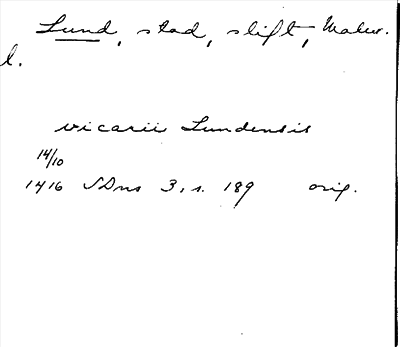 Lund, stad, stift, Malm.
l.
vicarii Lundensis
14/10
1416 SDns 3, s. 189 orig.